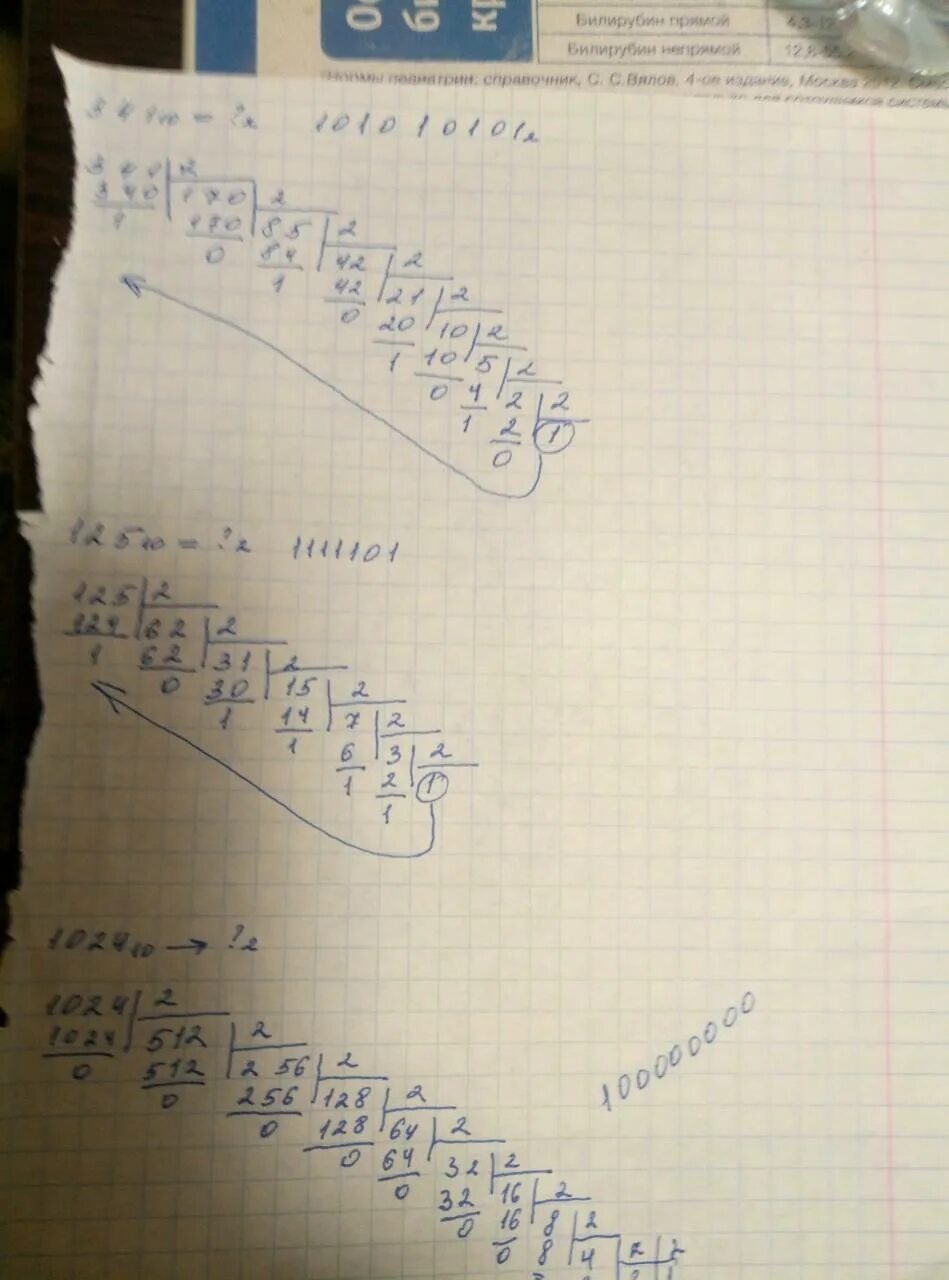 Билирубин прямой 4,3-12
Билирубин непрямой 12,8-
Нормы педиатрии: справочник, С. С.Вялов, 4-ое издание, Москва
341₁₀ = ?₂ 101010101₂
341 2
340 170 2
1 170 85 2
0 84 42 2
1 42 21 2
0 20 10 2
1 10 5 2
0 4 2 2
1 2 1
0
125₁₀ = ?₂ 1111101
125 2
124 62 2
1 62 31 2
0 30 15 2
1 14 7 2
1 6 3 2
1 2 1
1
1024₁₀ → ?₂
1024 2
1024 512 2
0 512 256 2
0 256 128 2
0 128 64 2
0 64 32 2
0 32 16 2
0 16 8 2
0 8 4 2 2
100000000